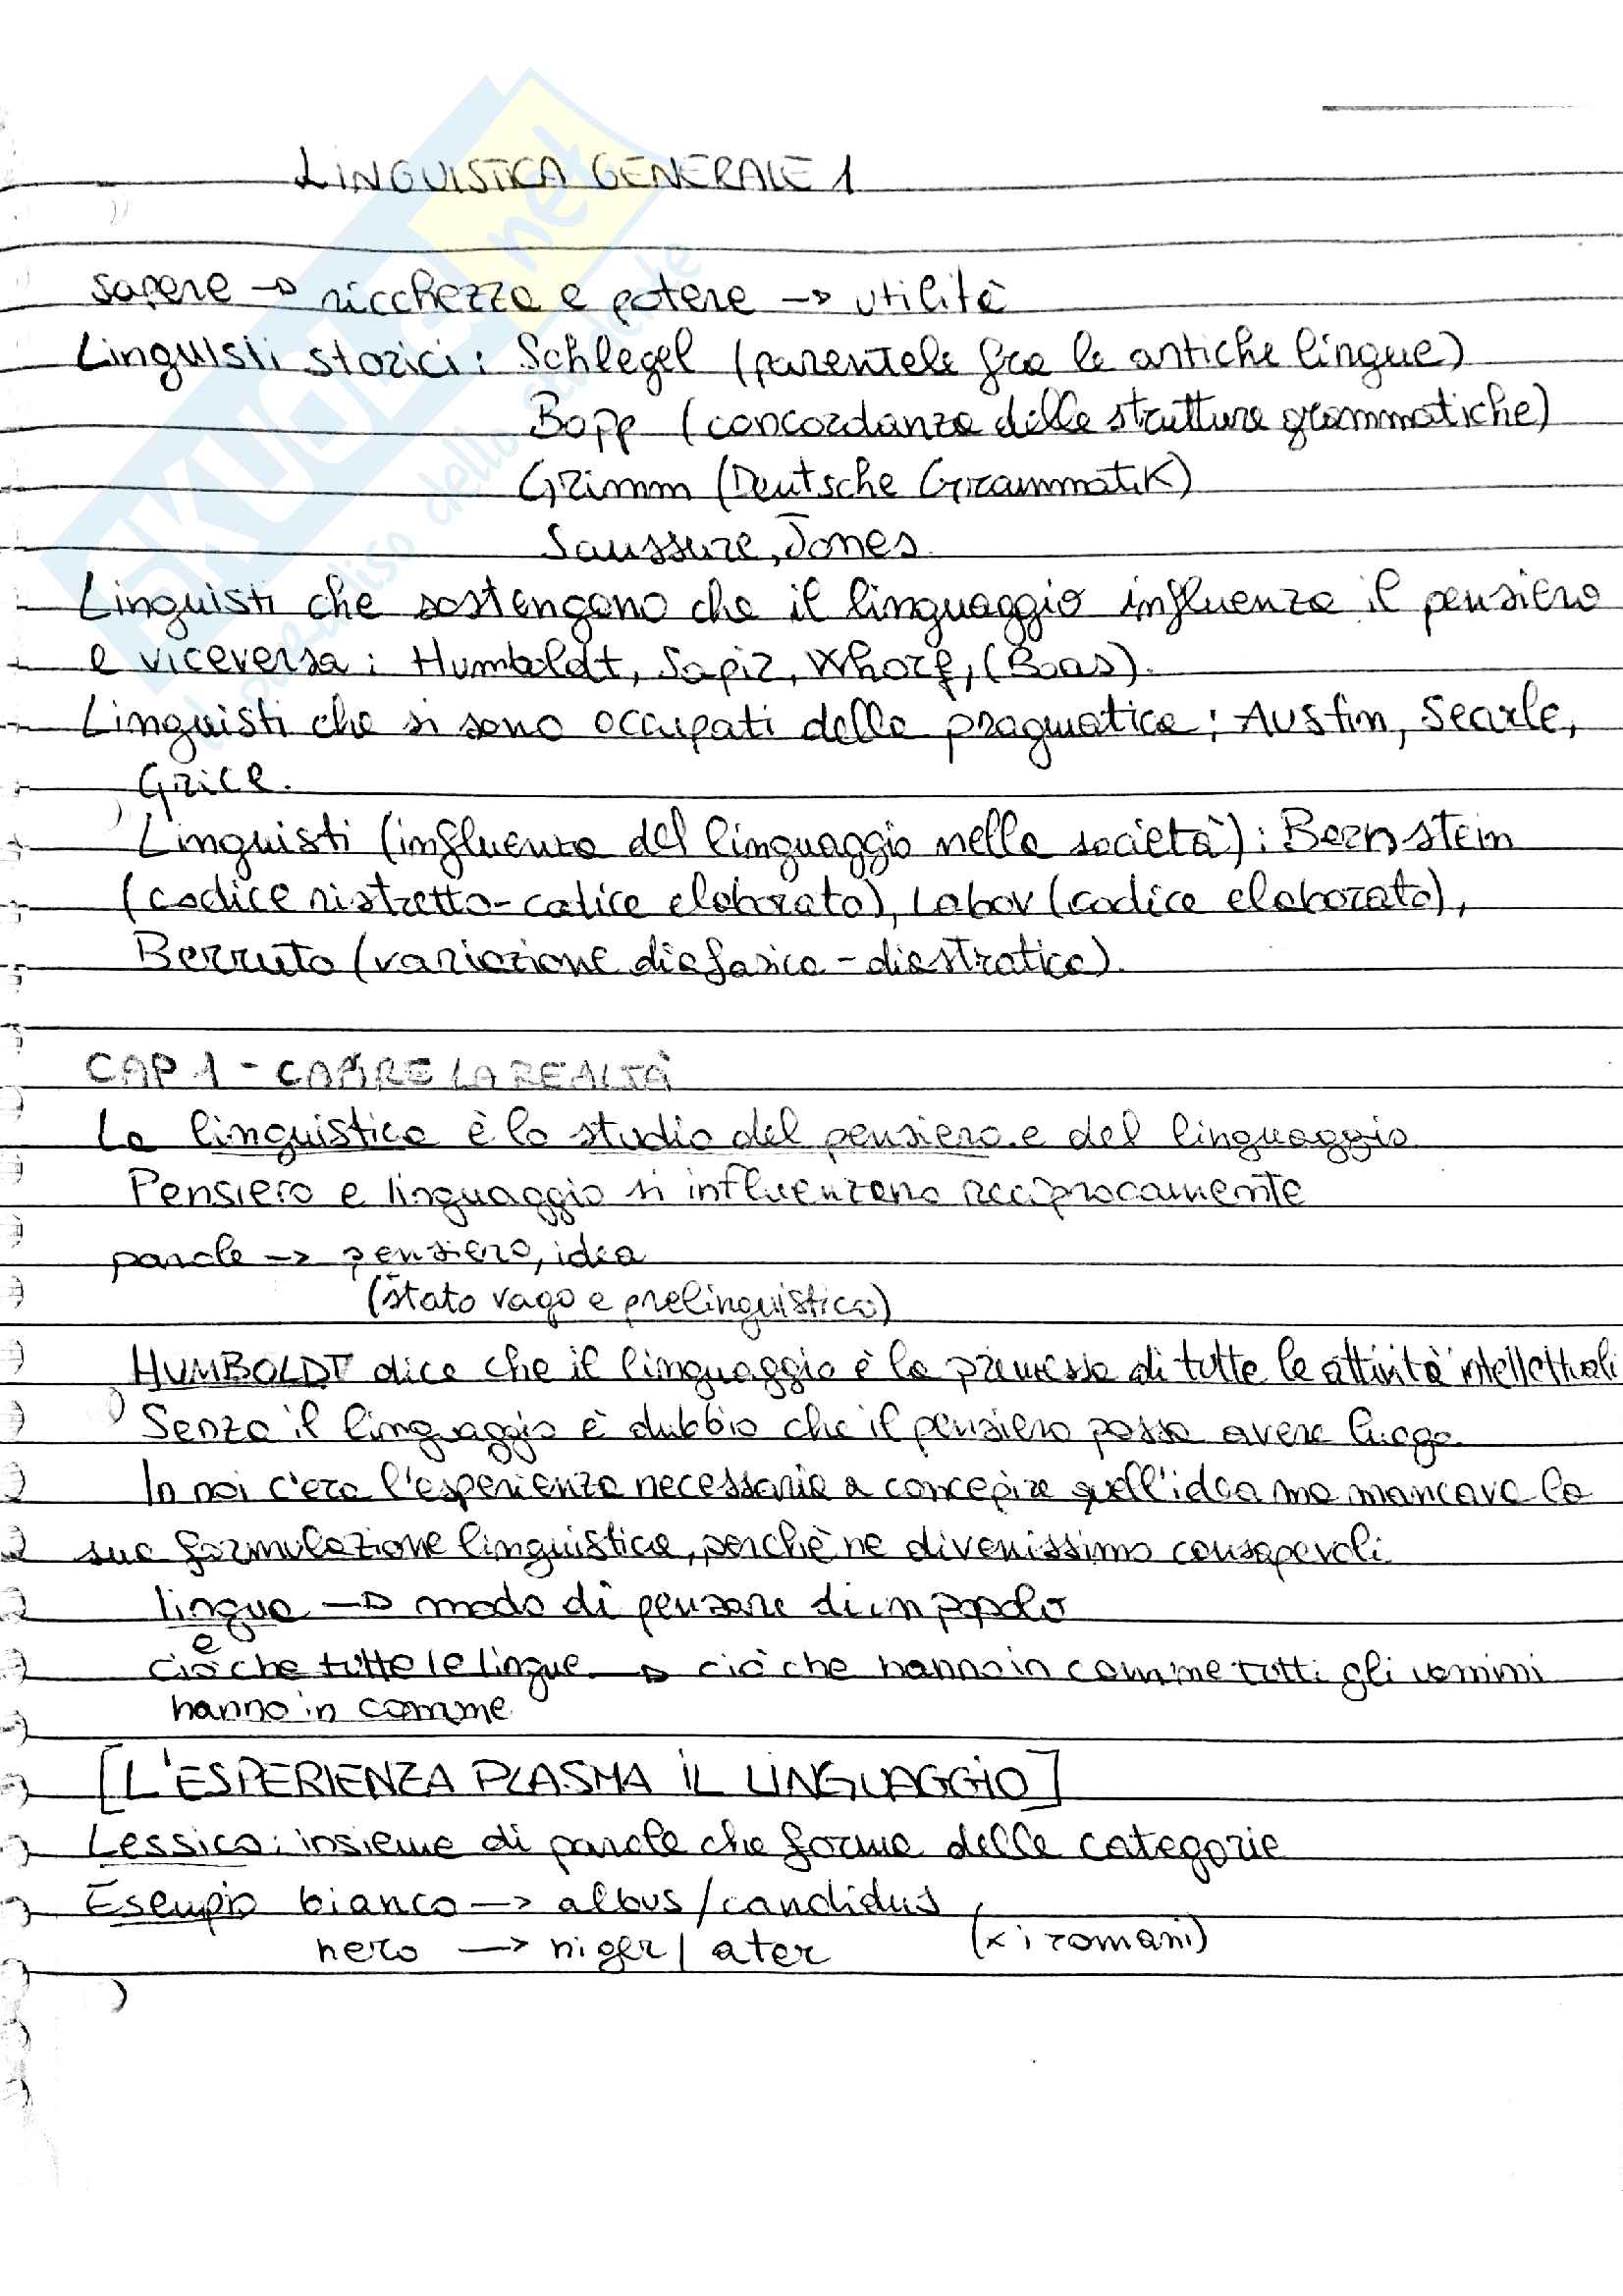 LINGUISTICA GENERALE 1
sapere → ricchezza e potere → utilità
Linguisti storici: Schlegel (parentele fra le antiche lingue)
Bopp (concordanza delle strutture grammatiche)
Grimm (Deutsche Grammatik)
Saussure, Jones
Linguisti che sostengono che il linguaggio influenza il pensiero
e viceversa: Humboldt, Sapir, Whorf, (Boas).
Linguisti che si sono occupati della pragmatica: Austin, Searle,
Grice.
Linguisti (influenza del linguaggio nella società): Bernstein
(codice ristretto-codice elaborato), Labov (codice elaborato),
Berruto (variazione diafasica-diastratica).
CAP 1 - CAPIRE LA REALTÀ
La linguistica è lo studio del pensiero e del linguaggio
Pensiero e linguaggio si influenzano reciprocamente
parole → pensiero, idea
(stato vago e prelinguistico)
HUMBOLDT dice che il linguaggio è la premessa di tutte le attività intellettuali
Senza il linguaggio è dubbio che il pensiero possa avere luogo.
In noi c'era l'esperienza necessaria a concepire quell'idea ma mancava la
sua formulazione linguistica, perchè ne divenissimo consapevoli
lingua → modo di pensare di un popolo
e
ciò che tutte le lingue → ciò che hanno in comune tutti gli uomini
hanno in comune
[L'ESPERIENZA PLASMA IL LINGUAGGIO]
Lessico: insieme di parole che forma delle categorie
Esempio bianco → albus/candidus
nero → niger/ater (x i romani)
SKUOLA.net
il paradiso dello studente